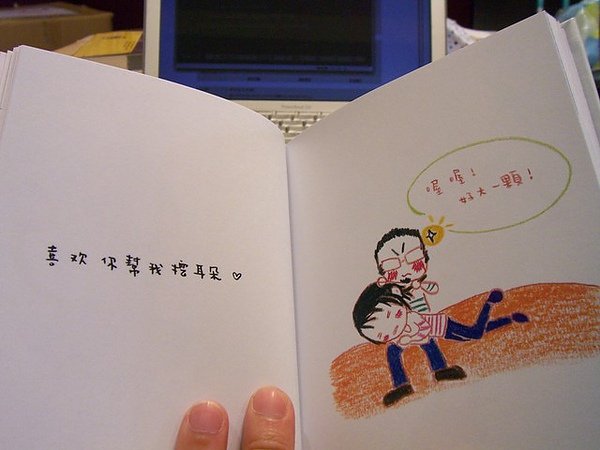 喜欢你幫我挖耳朵♡
喔喔!
好大一顆!